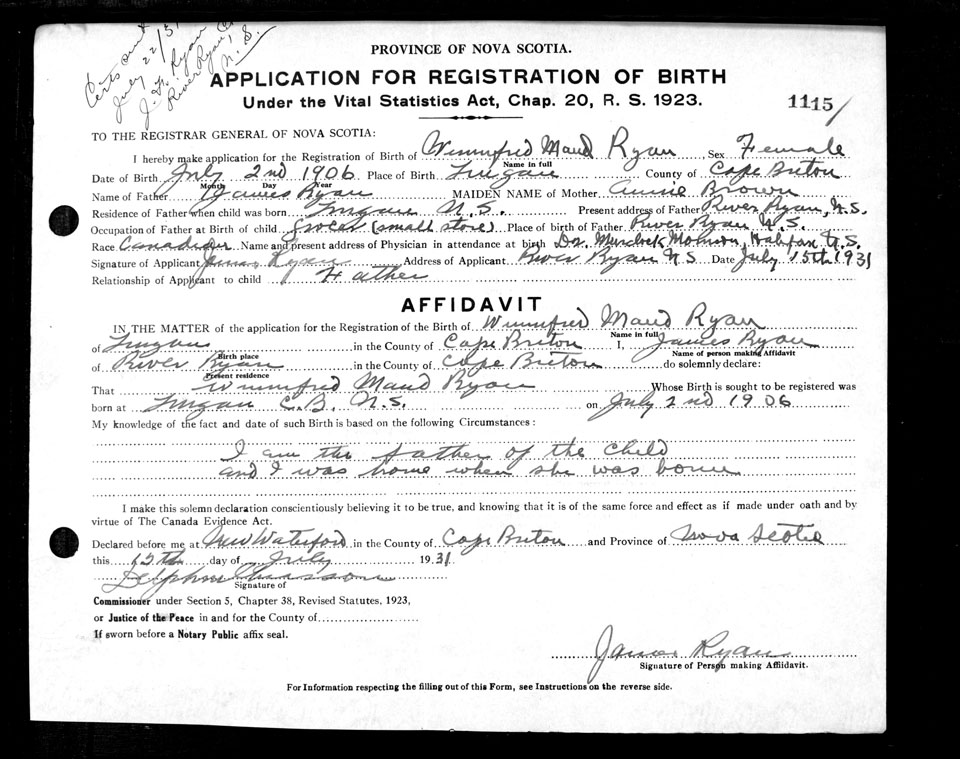 Certs sent
July 22/31
J. H. Ryan
River Ryan, C.B.
N. S.
PROVINCE OF NOVA SCOTIA.
APPLICATION FOR REGISTRATION OF BIRTH
Under the Vital Statistics Act, Chap. 20, R. S. 1923.
1115/
TO THE REGISTRAR GENERAL OF NOVA SCOTIA:
I hereby make application for the Registration of Birth of Winnifred Maud Ryan Sex Female
Name in full
Date of Birth July 2nd 1906 Place of Birth Lingan County of Cape Briton
Month Day Year
Name of Father James Ryan MAIDEN NAME of Mother Annie Brown
Residence of Father when child was born Lingan N.S. Present address of Father River Ryan, N.S.
Occupation of Father at Birth of child grocer (small store) Place of birth of Father River Ryan N.S.
Race Canadian Name and present address of Physician in attendance at birth Dr. Halifax N.S.
Signature of Applicant James Ryan Address of Applicant River Ryan N.S Date July 15th 1931
Relationship of Applicant to child Father
AFFIDAVIT
IN THE MATTER of the application for the Registration of the Birth of Winnifred Maud Ryan
Name in full
of Lingan in the County of Cape Briton I, James Ryan
Birth place Name of person making Affidavit
of River Ryan in the County of Cape Briton do solemnly declare:
Present residence
That Winnifred Maud Ryan Whose Birth is sought to be registered was
born at Lingan C.B. N.S. on July 2nd 1906
My knowledge of the fact and date of such Birth is based on the following Circumstances:
I am the father of the child
and I was home when she was born
I make this solemn declaration conscientiously believing it to be true, and knowing that it is of the same force and effect as if made under oath and by
virtue of The Canada Evidence Act.
Declared before me at New Waterford in the County of Cape Briton and Province of Nova Scotia
this 15th day of July 1931
Signature of
Commissioner under Section 5, Chapter 38, Revised Statutes, 1923,
or Justice of the Peace in and for the County of
If sworn before a Notary Public affix seal.
James Ryan
Signature of Person making Affidavit.
For Information respecting the filling out of this Form, see Instructions on the reverse side.